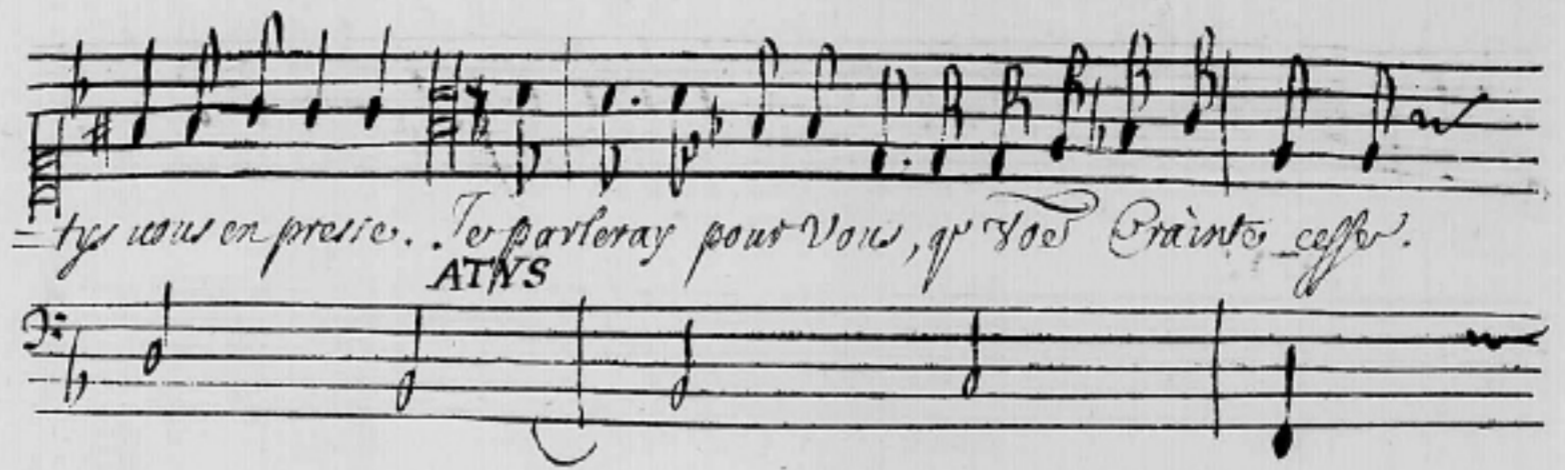 = tys nous en presse. Je parleray pour Vous, qe Voe Crainte cesse.
ATYS